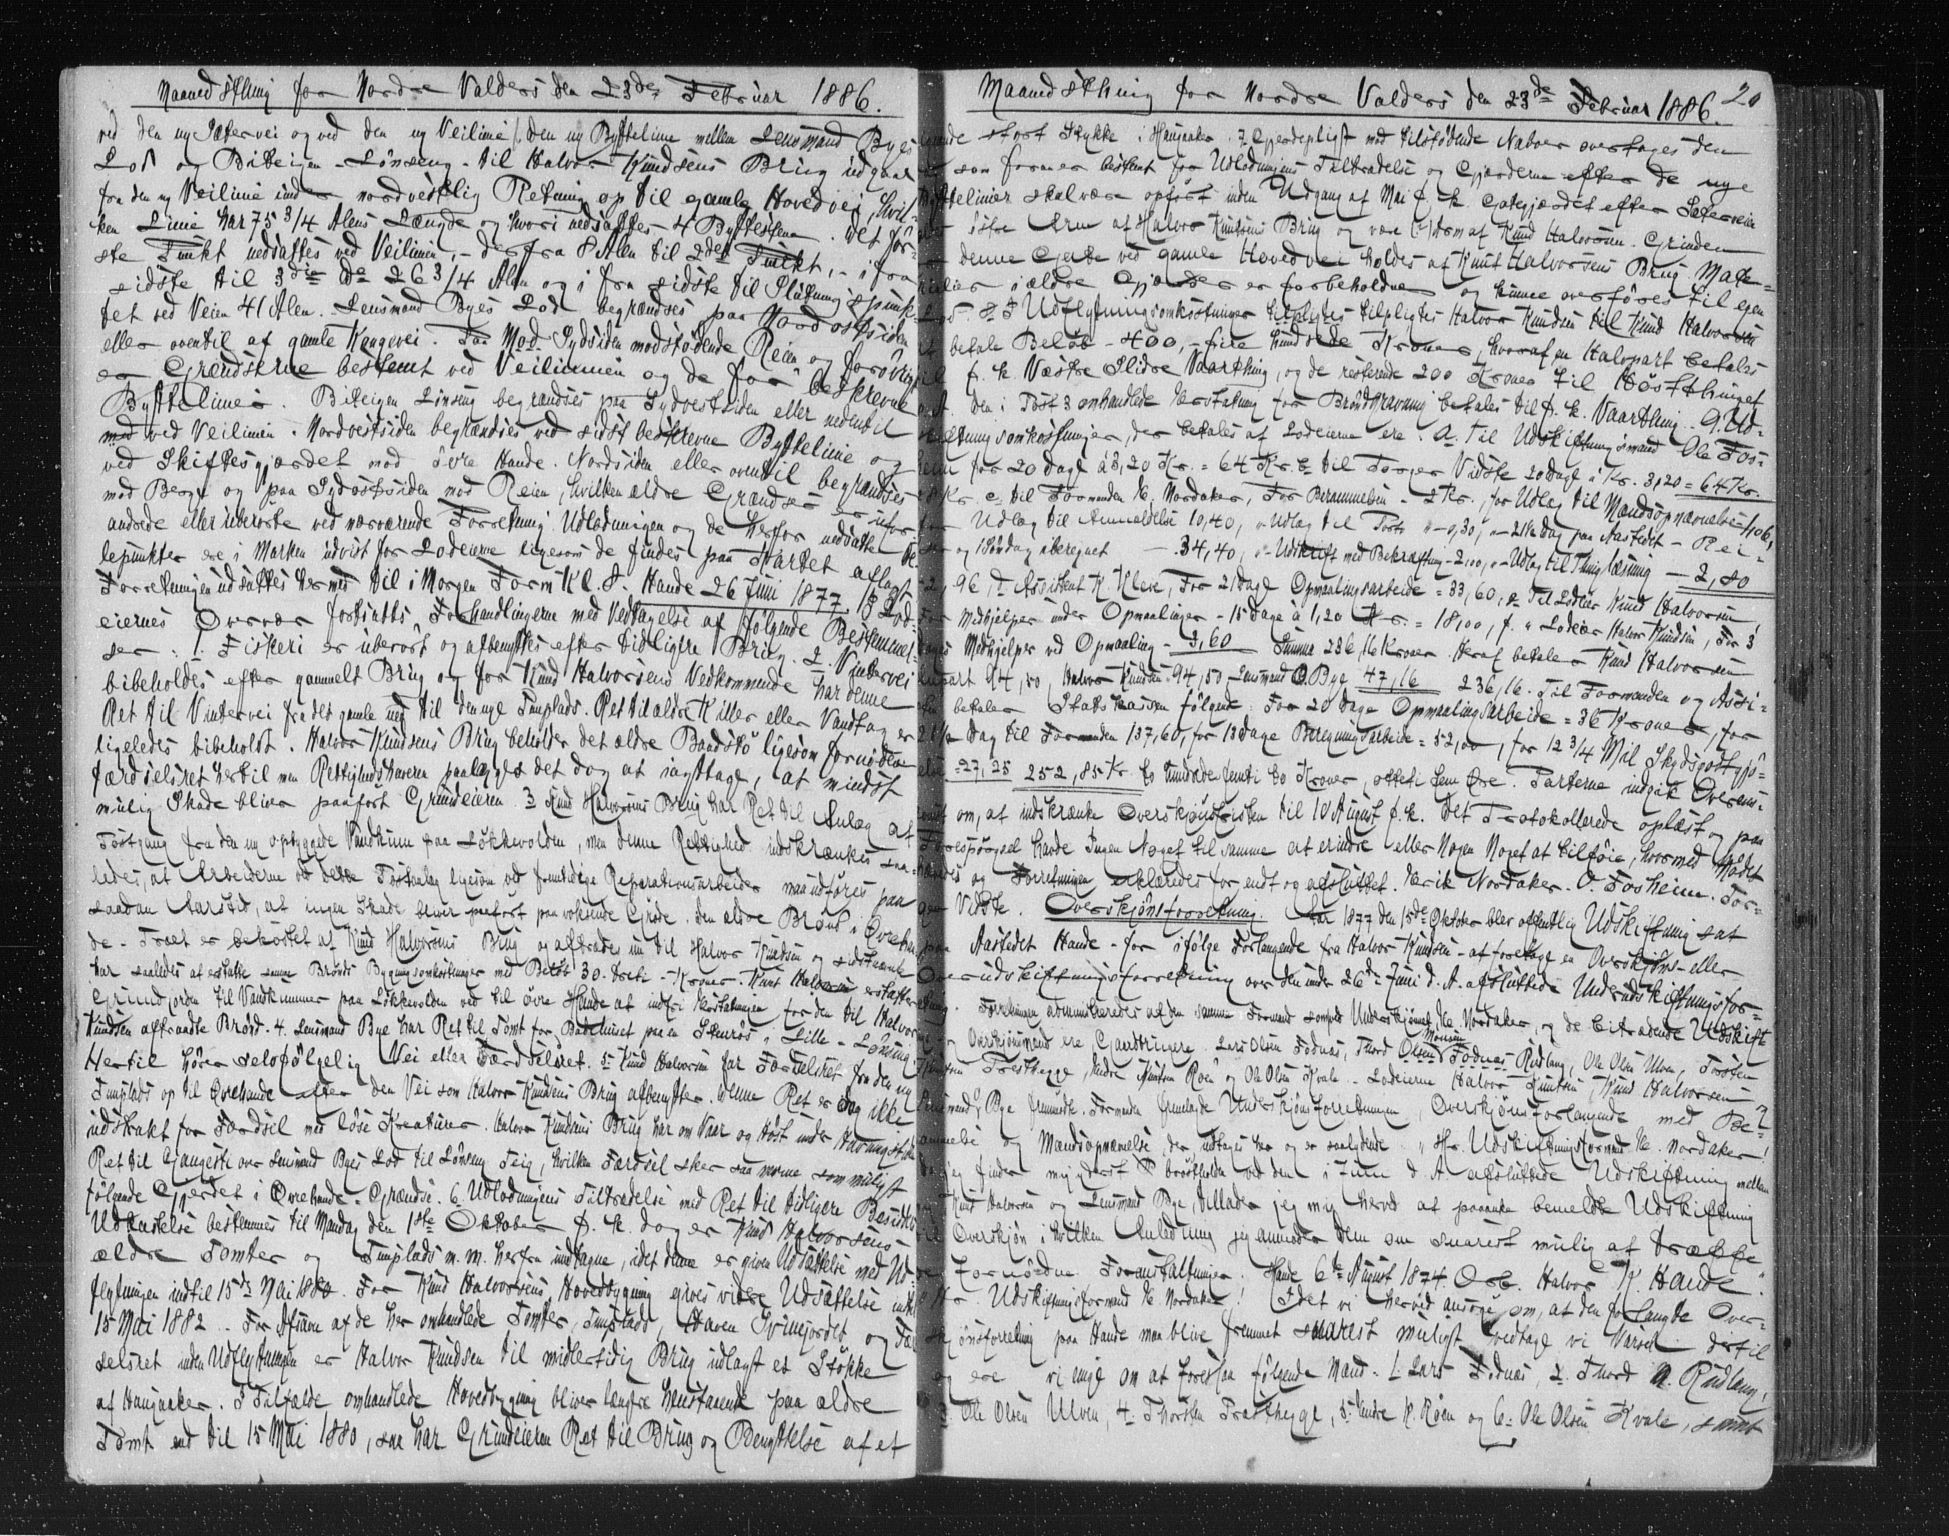 Maanedsthing for Nordre Valders den 23de Februar 1886.
ved den ny Sætervei og ved den ny Veilinie. Den ny Byttelinie mellem Lensmand Byes
Lod og Biteigen Lønseng til Halvor Knudsens Brug udgaar
fra den ny Veilinie under nordvestlig Retning op til gamle Hovedvei, hvil-
ken Linie har 75 3/4 Alens Længde og hvori nedsattes 4 Byttestene. Det før-
ste Punkt nedsattes ved Veilinien, derfra 8 Alen til 2det Punkt, ifra
sidste til 3die Do 26 3/4 Alen og i fra sidste til Slutningspunk-
tet ved Veien 41 Alen. Lensmand Byes Lod begrændses paa Nordostsiden
eller oventil af gamle Kongevei. Paa Mod Sydsiden modstødende Reien og forøvrigt
er Grændserne bestemt ved Veilinien og de før beskrevne
Byttelinier. Biteigen Lønseng begrændses paa Sydvestsiden eller nedentil
med ved Veilinien. Nordvestsiden begrændses ved sidst beskrevne Byttelinie og
ved Skiftesgjærdet mod øvre Hande. Nordsiden eller oventil begrændses
mod Berge og paa Sydostsiden mod Reien, hvilken ældre Grændser er ufor
andrede eller uberørte ved nærværende Forretning. Udlodningen og de herfor nedsatte De-
lepunkter ere i Marken udvist for Lodeierne ligesom de findes paa Kartet aflagt
Forretningen udsattes hermed til i Morgen Form Kl. 8. Hande 26 Juni 1877. I Lod-
eiernes Overvær fortsattes Forhandlingerne med Vedtagelse af følgende Bestemmel-
ser: 1. Fiskeri er uberørt og afbenyttes efter tidligere Brug. 2. Vintervei
bibeholdes efter gammelt Brug og for Knud Halvorsens Vedkommende har denne
Ret til Vintervei fra det gamle ned til den nye Tunplads. Ret til ældre Killer eller Vandtag er
ligeledes bibeholdt. Halvor Knudsens Brug beholder det ældre Baadstø ligesom fornøden
færdselsret hertil men Rettighedshaveren paalægges det dog at iagttage, at mindst
mulig Skade bliver paaført Grundeieren. 3 Knud Halvorsens Brug har Ret til Anlæg af
Postgang fra den ny opbyggede Vandkum paa Løkkevolden, men denne Rettighed indskrænkes saa-
ledes, at Arbeiderne ved dette Postanlæg ligesom ved fremtidige Reparationsarbeider maa udføres paa
saadan Aarstid, at ingen Skade bliver paaført paa voksende Grøde. Den ældre Brønd i Øvre Han-
de Træet er bekostet af Knud Halvorsens Brug og aftrædes nu til Halvor Knudsen og sidstnævnte
har saaledes at erstatte samme Brønds Bygningsomkostninger med Beløb 30 tretti Kroner. Knut Halvorsen erstatter
Grundjorden til Vandkummer paa Løkkevolden ved til øvre Hande at indfri Erstatningen for den til Halvor
Knudsen affraadte Brønd. 4. Lensmand Bye har Ret til Tomt for Badehuset paa en Skurøs i Lille-Lønseng
Hertil hører selvfølgelig Vei eller Færdselsret. 5. Knud Halvorsen har Færdselsret fra den ny
Tunplads op til Øvrehande efter den Vei som Halvor Knudsens Brug afbenytter. Denne Ret er dog ikke
udstrakt for Færdsel med løse Kreaturer. Halvor Knudsens Brug har om Vaar og Høst under Havningstiden
Ret til Gangesti over Lensmand Byes Lod til Lønseng Teig, hvilken Færdsel sker saa nærme som muligt
følgende Gjerdet i Øvrehande Grændse. 6. Udlodningens Tiltrædelse med Ret til tidligere Besidders
Udkastelse bestemmes til Mandag den 1ste Oktober f. k. dog er Knud Halvorsens
ældre Tomter og Tunplads m.m. herfra undtagne, idet denne er given Udsættelse med Ud-
flytningen indtil 15de Mai 1880. For Knud Halvorsens Hovedbygning gives videre Udsættelse indtil
15 Mai 1882. For Afsavn af de her omhandlede Tomter, Tunplads, Haven Svinejordet og Fær
selsret inden Udflytningen er Halvor Knudsen til midlertidig Brug udlagt et Stykke
af Haugaaker. I Tilfælde omhandlede Hovedbygning bliver længere henstaaende paa ældre
Tomt end til 15 Mai 1880, saa har Grundeieren Ret til Brug og Benyttelse af et
Maanedsthing for Nordre Valders den 23de Februar 1886. 20
stort Stykke i Haugaaker. 7 Gjerdepligt mod tilstødende Naboer overtages den
som former bestemt for Udlodningens Tiltrædelse og Gjærderne efter de nye
Byttelinier skal være opført inden Udgang af Mai f. k. Gategjærdet efter Sæterveien
østre Arm af Halvor Knutsens Brug og vere Eiendom af Knud Halvorsen. Grinden
denne Gate ved gamle Hovedvei holdes af Knut Halvorsens Brug. Mate-
rialier i ældre Gjærder er forbeholdne og kunne overføres til egen
Lod. 8 I Udflytningsomkostninger tilpligtes Halvor Knudsen til Knud Halvorsen
at betale Beløb 400,- fire hundrede Kroner, hvoraf en Halvpart betales
til f. k. Vestre Slidre Vaarthing, og de resterende 200 Kroner til Høstthinget
s. A. Den i Post 3 omhandlede Erstatning for Brøndgravning betales til f. k. Vaarthing. 9. Ud-
skiftningsomkostninger, der betales af Lodeierne ere: a. Til Udskiftningsmand Ole Fos-
heim for 20 Dage à 3,20 Kr. = 64 Kr. b. til Torger Vidste 20 Dage à Kr. 3,20 = 64 Kr.
Kr. c. til Formanden E. Nordaker, For Berammelsen 2 Kr., for Udlæg til Mandsopnævnelse 1,06,
Udlæg til Anmeldelse 10,40, Udlæg til Porto 0,30, 21 1/2 Dag paa Aastedet - Rei-
ser og 1 Søndag iberegnet 34,40, Udskrift med Bekræftning 2,00, Udlæg til Thinglæsning 2,80
2,96, d. Assistent K. Kleve, For 21 Dage Opmaalingsarbeide = 33,60, e Til Lodeier Knud Halvorsen,
For Medhjelper under Opmaalingen 15 Dage à 1,20 Kr. = 18,00, f. Lodeier Halvor Knudsen, For 3
Dages Medhjelper ved Opmaaling 3,60 Summa 236,16 Kroner. Heraf betaler Knud Halvorsen
Halvpart 94,50, Halvor Knudsen 94,50 Lensmand O. Bye 47,16 236,16. Til Formanden og Assi-
stenten betaler Statskassen følgende: For 20 Dage Opmaalingsarbeide = 36 Kroner, for
21 1/2 Dag til Formanden 137,60, for 13 Dage Beregningsarbeide = 52,00, for 12 3/4 Mil Skydsgodtgjø-
relse = 27,25 252,85 Kr to hundrede femti to Kroner, otteti fem Øre. Parterne indgik Overens-
komst om, at indskrænke Overskjønsfristen til 10 August f. k. Det Protokollerede oplæst og paa
Forespørgsel havde Ingen Noget til samme at erindre eller Nogen Noget at tilføie, hvormed Mødet
hævedes og Forretningen erklæredes for endt og afsluttet. Erik Nordaker. O. Fosheim. Tor-
ger Vidste. Overskjønsforretning. Aar 1877 den 15de Oktober blev offentlig Udskiftning sat
paa Aastedet Hande - for ifølge Forlangende fra Halvor Knudsen - at foretage en Overskjøns- eller
Overudskiftningsforretning over den under 26de Juni d. A. afsluttede Underudskiftningsfor-
retning. Forretningen administreredes af den samme Formand som ved Underskjønnet, E. Nordaker, og de tiltrædende Udskift-
nings- og Overskjønsmænd ere Gaardbrugere Lars Olsen Fodnæs, Thord Olsen Monsen Fodnæs Rudlang, Ole Olsen Ulven, Torsten
Knutsen Trøsthegge, Endre Knutsen Røen og Ole Olsen Kvale. Lodeierne Halvor Knutsen, Knud Halvorsen
Lensmand Bye fremmødt. Formanden fremlagde Underskjønsforretningen, Overskjønsforlangende med Be-
rammelse og Mandsopnævnelse, der indtages her og er saalydende: „Hr. Udskiftningsformand E. Nordaker!
Da jeg finder mig yderst brøstholden ved den i Juni d. A. afsluttede Udskiftning mellem
Knut Halvorsen og Lensmand Bye, tillader jeg mig herved at paaanke bemeldte Udskiftning
til Overskjøn i hvilken Anledning jeg anmoder Dem om snarest mulig at træffe
de fornødne Foranstaltninger. Hande 6te August 1877. Ærb. Halvor K. Hande.
Hr Udskiftningsformand E. Nordaker! Idet vi herved ansøge om, at den forlangte Over-
skjønsforretning paa Hande maa blive fremmet snarest muligt vedtage vi Varsel dertil
og ere vi enige om at foreslaa følgende Mænd: 1. Lars Fodnæs, 2. Thord M. Rudlang,
3. Ole Olsen Ulven, 4. Thorsten Trøsthegge, 5. Endre K. Røen og 6. Ole Olsen Kvale, samt